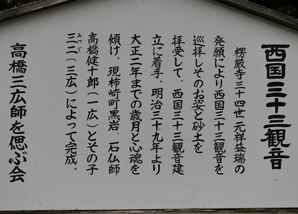 西国三十三観音
楞厳寺三十四世一元祥益瑞の
発願により西国三十三観音を
巡拝しそのお姿と砂土を
拝受して、西国三十三観音建
立に着手、明治三十九年より
大正二年までの歳月と心魂を
傾け、現柿崎町黒岩、石仏師
高橋健十郎(一広)とその子
三二(三広)によって完成.
みつじ
高橋三広師を偲ぶ会